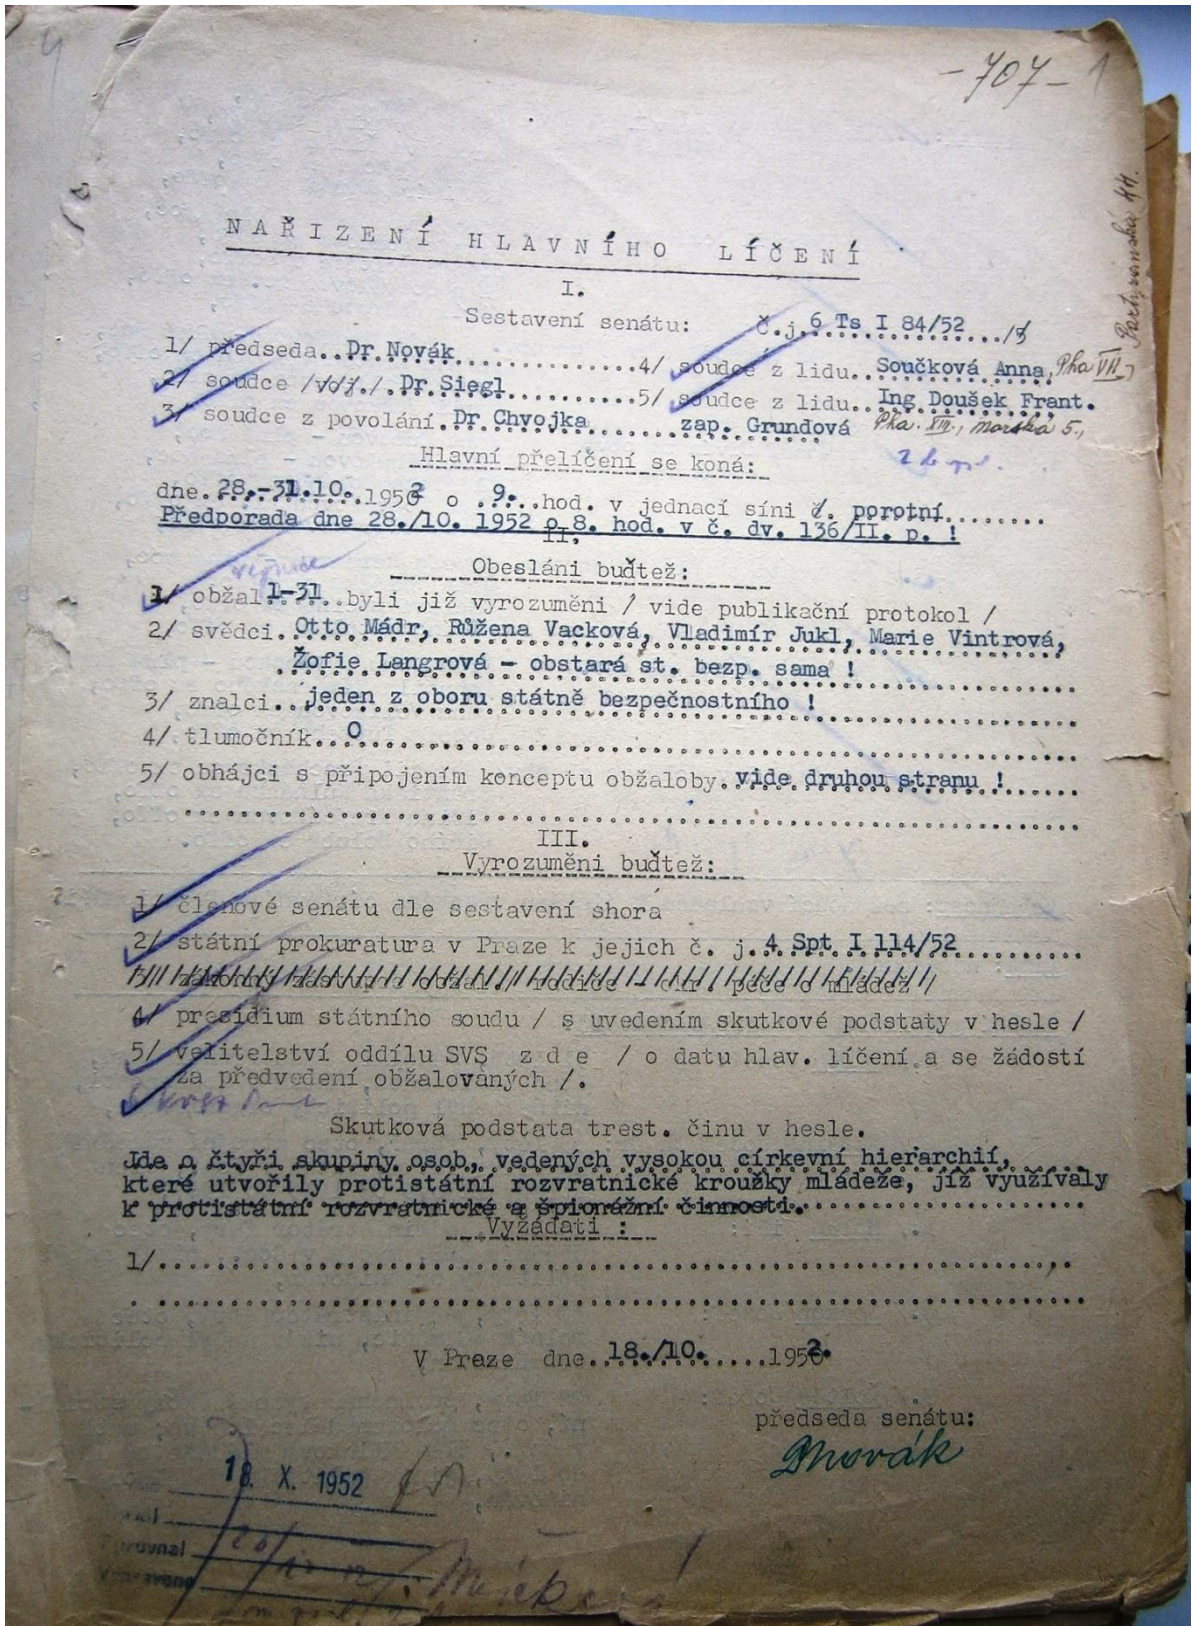 -707- 1
Partyzánská 44.
NAŘIZENÍ HLAVNÍHO LÍČENÍ
I.
Sestavení senátu: Č.j. 6 Ts I 84/52
1/ předseda..Dr.Novák..............4/ soudce z lidu..Součková Anna, Pha VII.,
2/ soudce /voj./.Dr.Siegl..........5/ soudce z lidu..Ing Doušek Frant.
3/ soudce z povolání.Dr.Chvojka......zap. Grundová Pha. XIII., 5.,
Hlavní přelíčení se koná:
dne.28.-31.10.1952 o .9...hod. v jednací síni č. porotní........
Předporada dne 28./10. 1952 o 8. hod. v č. dv. 136/II. p. !
II.
Obesláni buďtež:
1/ obžal.1-31..byli již vyrozuměni / vide publikační protokol /
2/ svědci.Otto Mádr, Růžena Vacková, Vladimír Jukl, Marie Vintrová,
.Žofie Langrová - obstará st. bezp. sama !
3/ znalci..jeden z oboru státně bezpečnostního !
4/ tlumočník..O
5/ obhájci s připojením konceptu obžaloby.vide druhou stranu !
III.
Vyrozuměni buďtež:
1/ členové senátu dle sestavení shora
2/ státní prokuratura v Praze k jejich č. j.4 Spt I 114/52
4/ presidium státního soudu / s uvedením skutkové podstaty v hesle /
5/ velitelství oddílu SVS z d e / o datu hlav. líčení a se žádostí
za předvedení obžalovaných /.
Skutková podstata trest. činu v hesle.
Jde o čtyři skupiny osob, vedených vysokou církevní hierarchií,
které utvořily protistátní rozvratnické kroužky mládeže, jíž využívaly
k protistátní rozvratnické a špionážní činnosti.
Vyžádati :
1/
V Praze dne..18./10.......1952.
předseda senátu:
DNovák
18. X. 1952